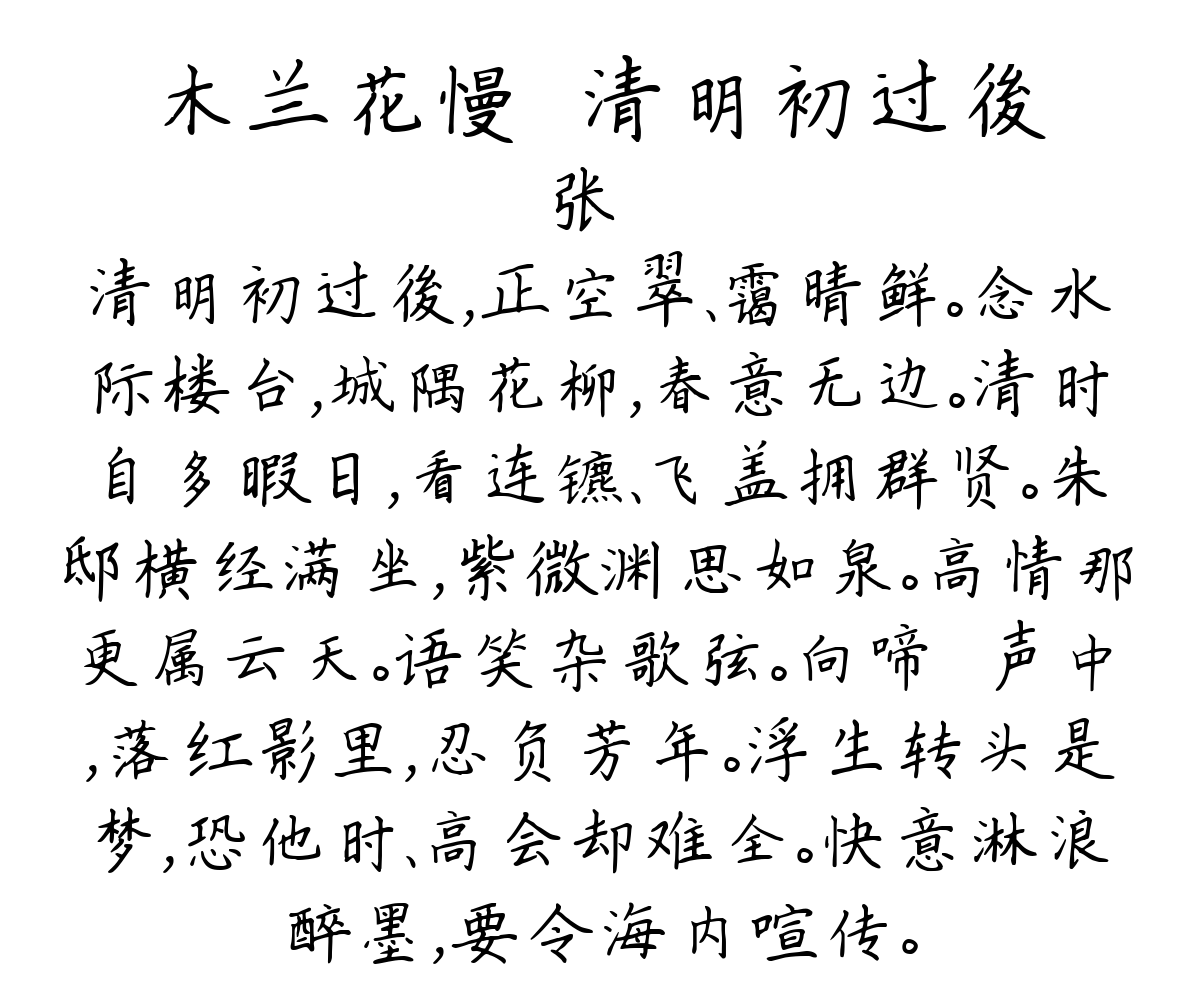 木兰花慢 清明初过後
张
清明初过後,正空翠、霭晴鲜。念水
际楼台,城隅花柳,春意无边。清时
自多暇日,看连镳、飞盖拥群贤。朱
邸横经满坐,紫微渊思如泉。高情那
更属云天。语笑杂歌弦。向啼 声中
,落红影里,忍负芳年。浮生转头是
梦,恐他时、高会却难全。快意淋浪
醉墨,要令海内喧传。